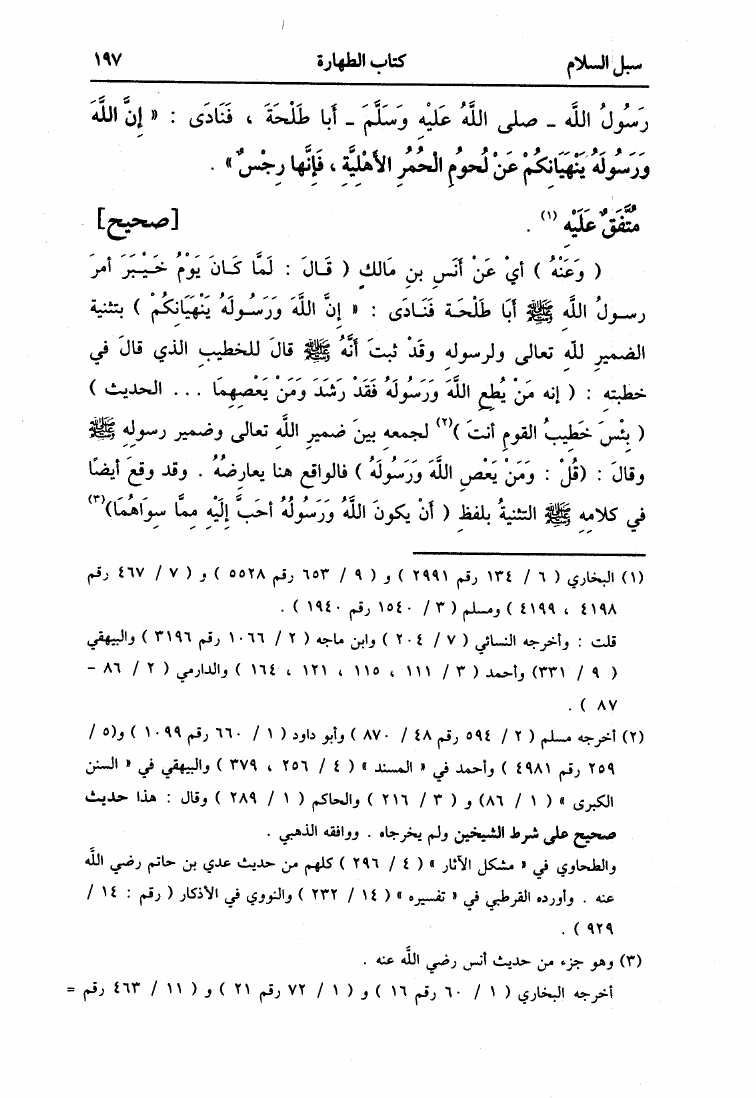 سبل السلام كتاب الطهارة ١٩٧
رَسُولُ اللَّه ـ صلى اللَّهُ عَلَيْهِ وَسَلَّمَ ـ أبا طَلْحَةَ ، فَنَادَى : « إنَّ اللَّهَ
وَرَسُولَهُ يَنْهَيَانِكُمْ عَنْ لُحومِ الحُمُرِ الأهْلِيَّةِ ، فَإِنَّها رِجْسٌ » .
مُتَّفَقٌ عَلَيْهِ (١) . [صحيح]
( وَعَنْهُ ) أيْ عَنْ أنَسِ بنِ مَالكٍ ( قَالَ : لَمَّا كَانَ يَوْمُ خَيْبَرَ أمرَ
رسولُ اللَّهِ ﷺ أبَا طَلْحَة فَنَادَى : « إنَّ اللَّهَ وَرَسُولَهُ يَنْهَيَانِكُمْ ) بتثنية
الضميرِ للَّهِ تعالى ولرسولهِ وقَدْ ثبتَ أنَّهُ ﷺ قالَ للخطيبِ الذي قالَ في
خطبتهِ : ( إنه مَنْ يُطعِ اللَّهَ وَرَسُولَهُ فَقَدْ رَشَدَ وَمَنْ يَعْصِهِمَا ... الحديث )
( بِئْسَ خَطيبُ القومِ أنتَ )(٢) لجمعهِ بينَ ضميرِ اللَّهِ تعالى وضميرِ رسولهِ ﷺ
وقالَ : (قُلْ : وَمَنْ يَعْصِ اللَّهَ وَرَسُولَهُ ) فالواقع هنا يعارضُهُ . وقد وقعَ أيضًا
في كلامهِ ﷺ التثنيةُ بلفظِ ( أنْ يكونَ اللَّهُ وَرَسُولُهُ أحَبَّ إلَيْهِ ممَّا سِوَاهُمَا)(٣)
(١) البخاري ( ٦ / ١٣٤ رقم ٢٩٩١ ) و ( ٩ / ٦٥٣ رقم ٥٥٢٨ ) و ( ٧ / ٤٦٧ رقم
٤١٩٨ ، ٤١٩٩ ) ومسلم ( ٣ / ١٥٤٠ رقم ١٩٤٠ ) .
قلت : وأخرجه النسائي ( ٧ / ٢٠٤ ) وابن ماجه ( ٢ / ١٠٦٦ رقم ٣١٩٦ ) والبيهقي
( ٩ / ٣٣١) وأحمد ( ٣ / ١١١ ، ١١٥ ، ١٢١ ، ١٦٤ ) والدارمي ( ٢ / ٨٦ -
٨٧ ) .
(٢) أخرجه مسلم ( ٢ / ٥٩٤ رقم ٤٨ / ٨٧٠ ) وأبو داود ( ١ / ٦٦٠ رقم ١٠٩٩ ) و(٥ /
٢٥٩ رقم ٤٩٨١ ) وأحمد في « المسند » ( ٤ / ٢٥٦ ، ٣٧٩ ) والبيهقي في « السنن
الكبرى » ( ١ / ٨٦) و ( ٣ / ٢١٦ ) والحاكم ( ١ / ٢٨٩ ) وقال : هذا حديث
صحيح على شرط الشيخين ولم يخرجاه . ووافقه الذهبي .
والطحاوي في « مشكل الآثار » ( ٤ / ٢٩٦ ) كلهم من حديث عدي بن حاتم رضي اللَّه
عنه . وأورده القرطبي في « تفسيره » ( ١٤ / ٢٣٢ ) والنووي في الأذكار ( رقم : ١٤ /
٩٢٩ ) .
(٣) وهو جزء من حديث أنس رضي اللَّه عنه .
أخرجه البخاري ( ١ / ٦٠ رقم ١٦ ) و ( ١ / ٧٢ رقم ٢١ ) و ( ١١ / ٤٦٣ رقم =